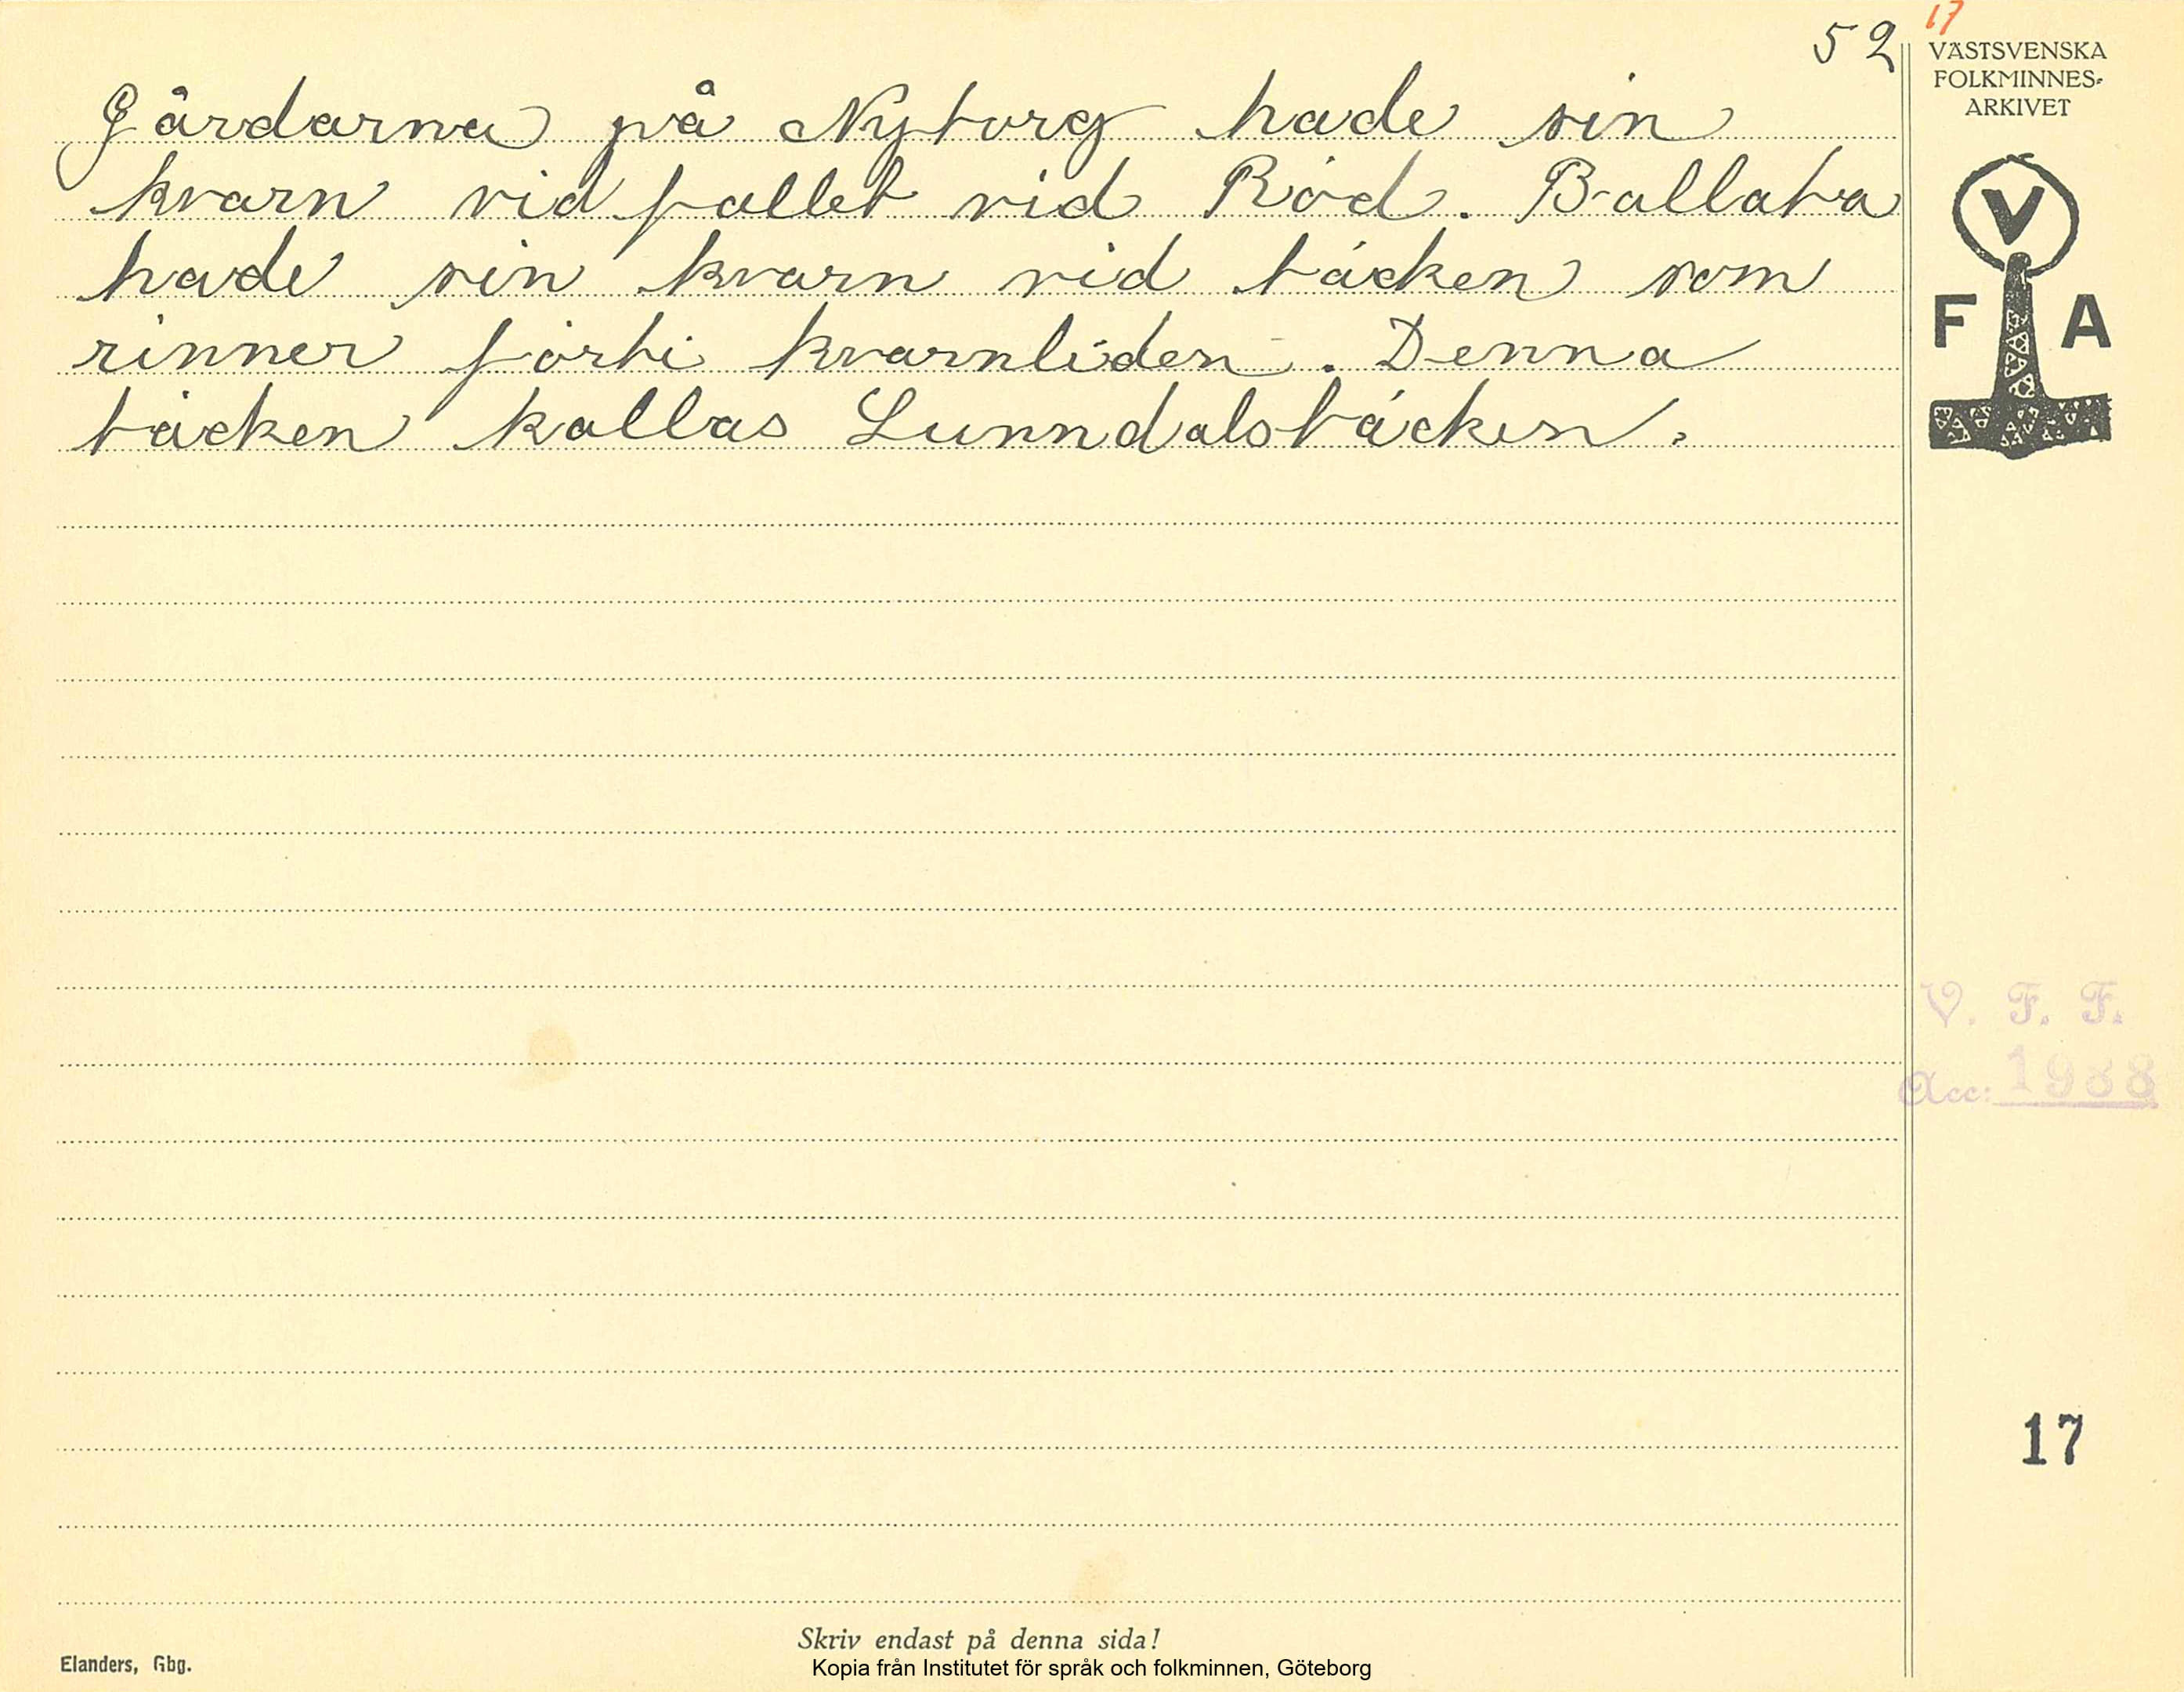 52
17
VÄSTSVENSKA
FOLKMINNES-
ARKIVET
Gårdarna på Nyborg hade sin
kvarn vid fallet vid Röd. Ballaba
hade sin kvarn vid bäcken som
rinner förbi kvarnliden. Denna
bäcken kallas Lunndalsbäcken.
V
F A
V. F. F.
Acc: 1988
17
Skriv endast på denna sida!
Elanders, Gbg.
Kopia från Institutet för språk och folkminnen, Göteborg